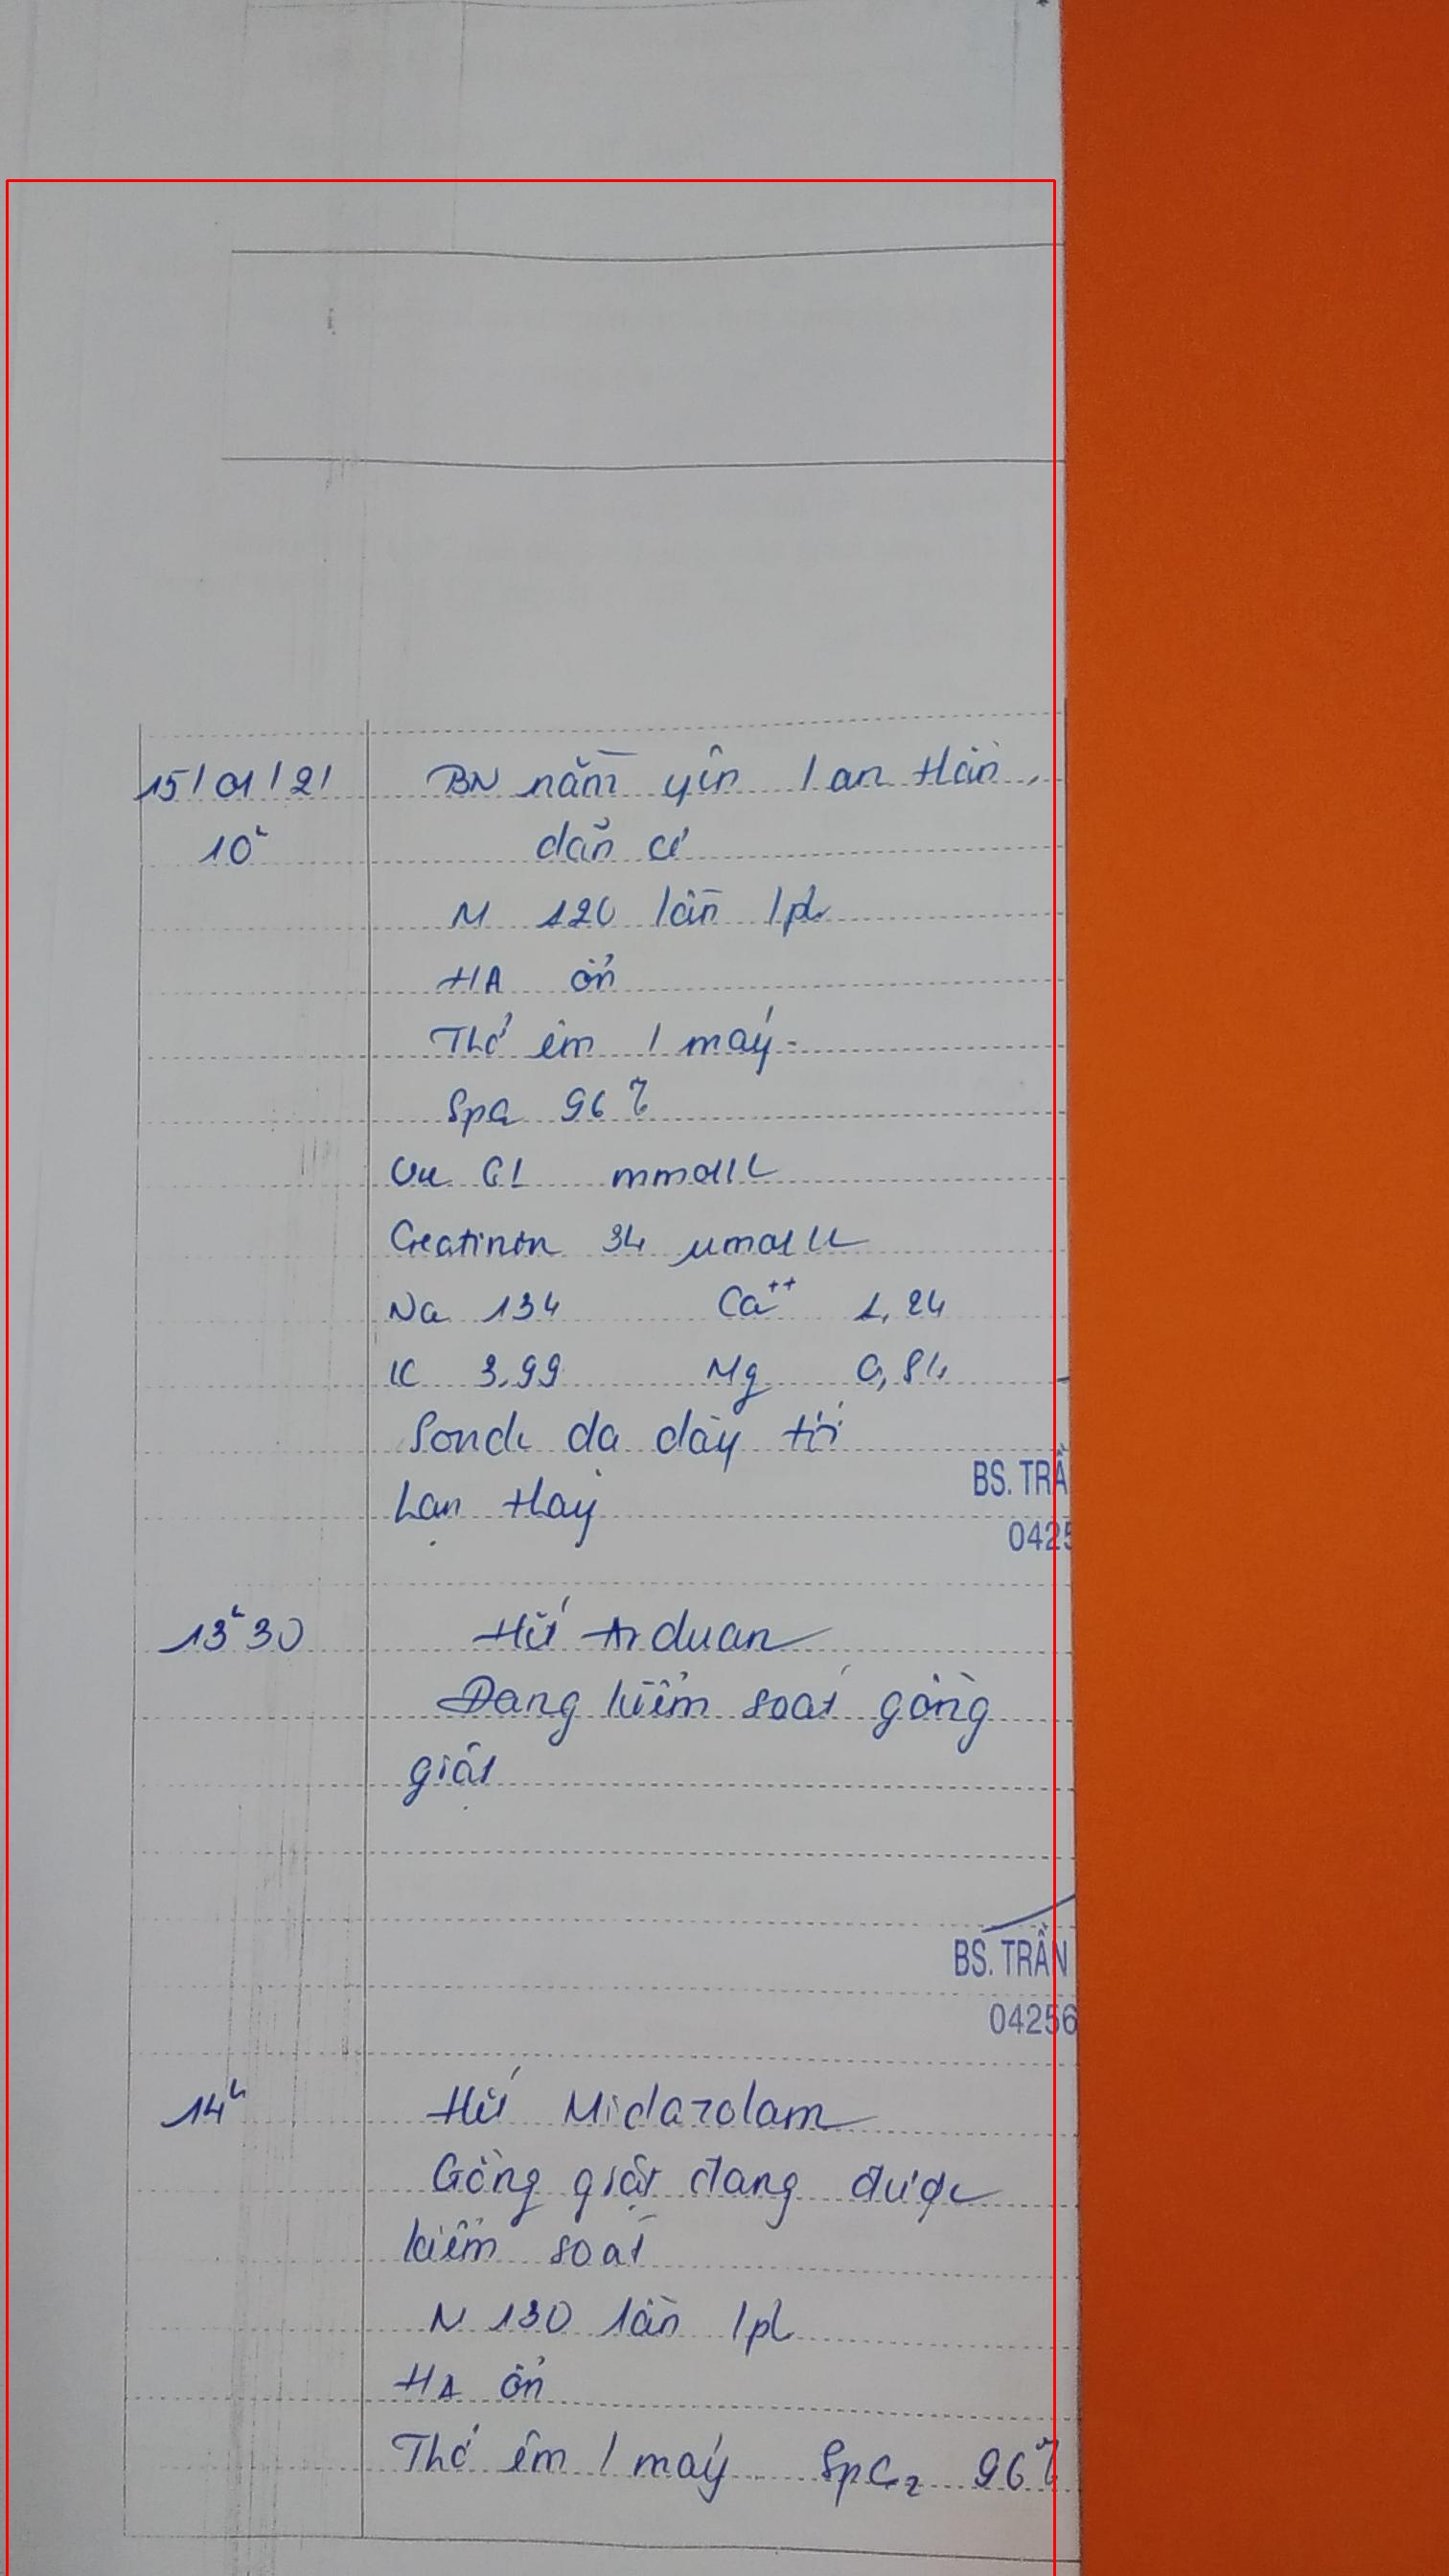 15/01/21 BN nằm yên / an thần,
10h dãn cơ
M 120 lần /ph
HA ổn
Thở êm / máy
SpO2 96%
Ure 61 mmol/L
Creatinin 34 µmol/L
Na 134 Ca++ 1,24
K 3.99 Mg 0,84
Sonde dạ dày tới
BS. TRẦ
0425
13h30 Hết Arduan
Đang kiểm soát gồng
giật
BS. TRẦN
04256
14h Hết Midazolam
Gồng giật đang được
kiểm soát
M 130 lần /ph
HA ổn
Thở êm / máy SpO2 96%